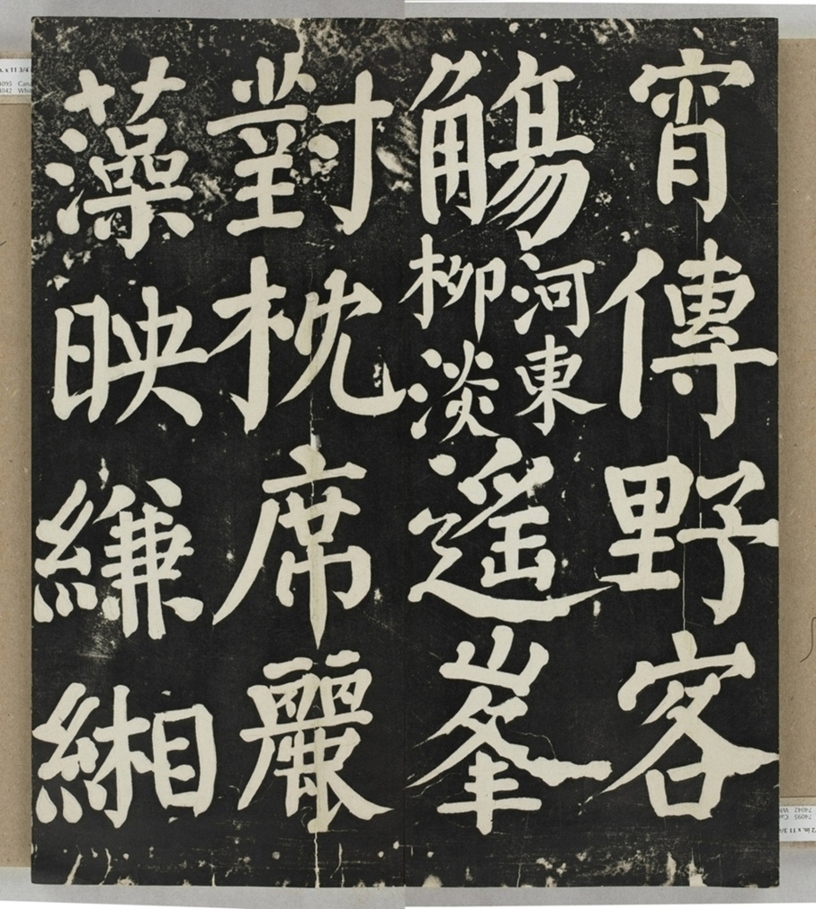 宵傳野客
觴河東柳淡遙峯
對枕席麗
藻映縑緗